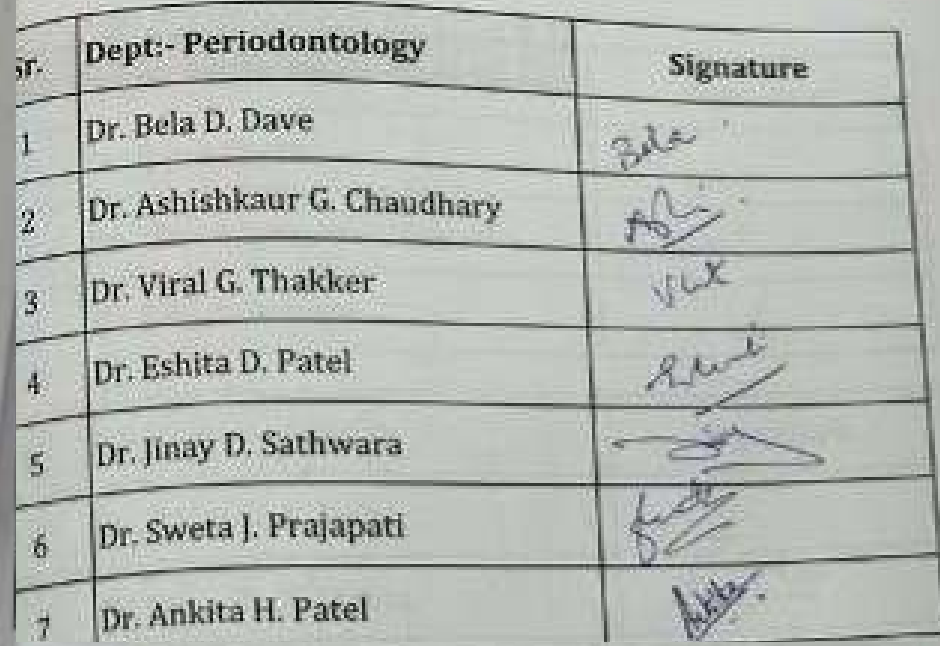 Sr. Dept:- Periodontology Signature
1 Dr. Bela D. Dave Bela
2 Dr. Ashishkaur G. Chaudhary
3 Dr. Viral G. Thakker
4 Dr. Eshita D. Patel
5 Dr. Jinay D. Sathwara
6 Dr. Sweta J. Prajapati
7 Dr. Ankita H. Patel